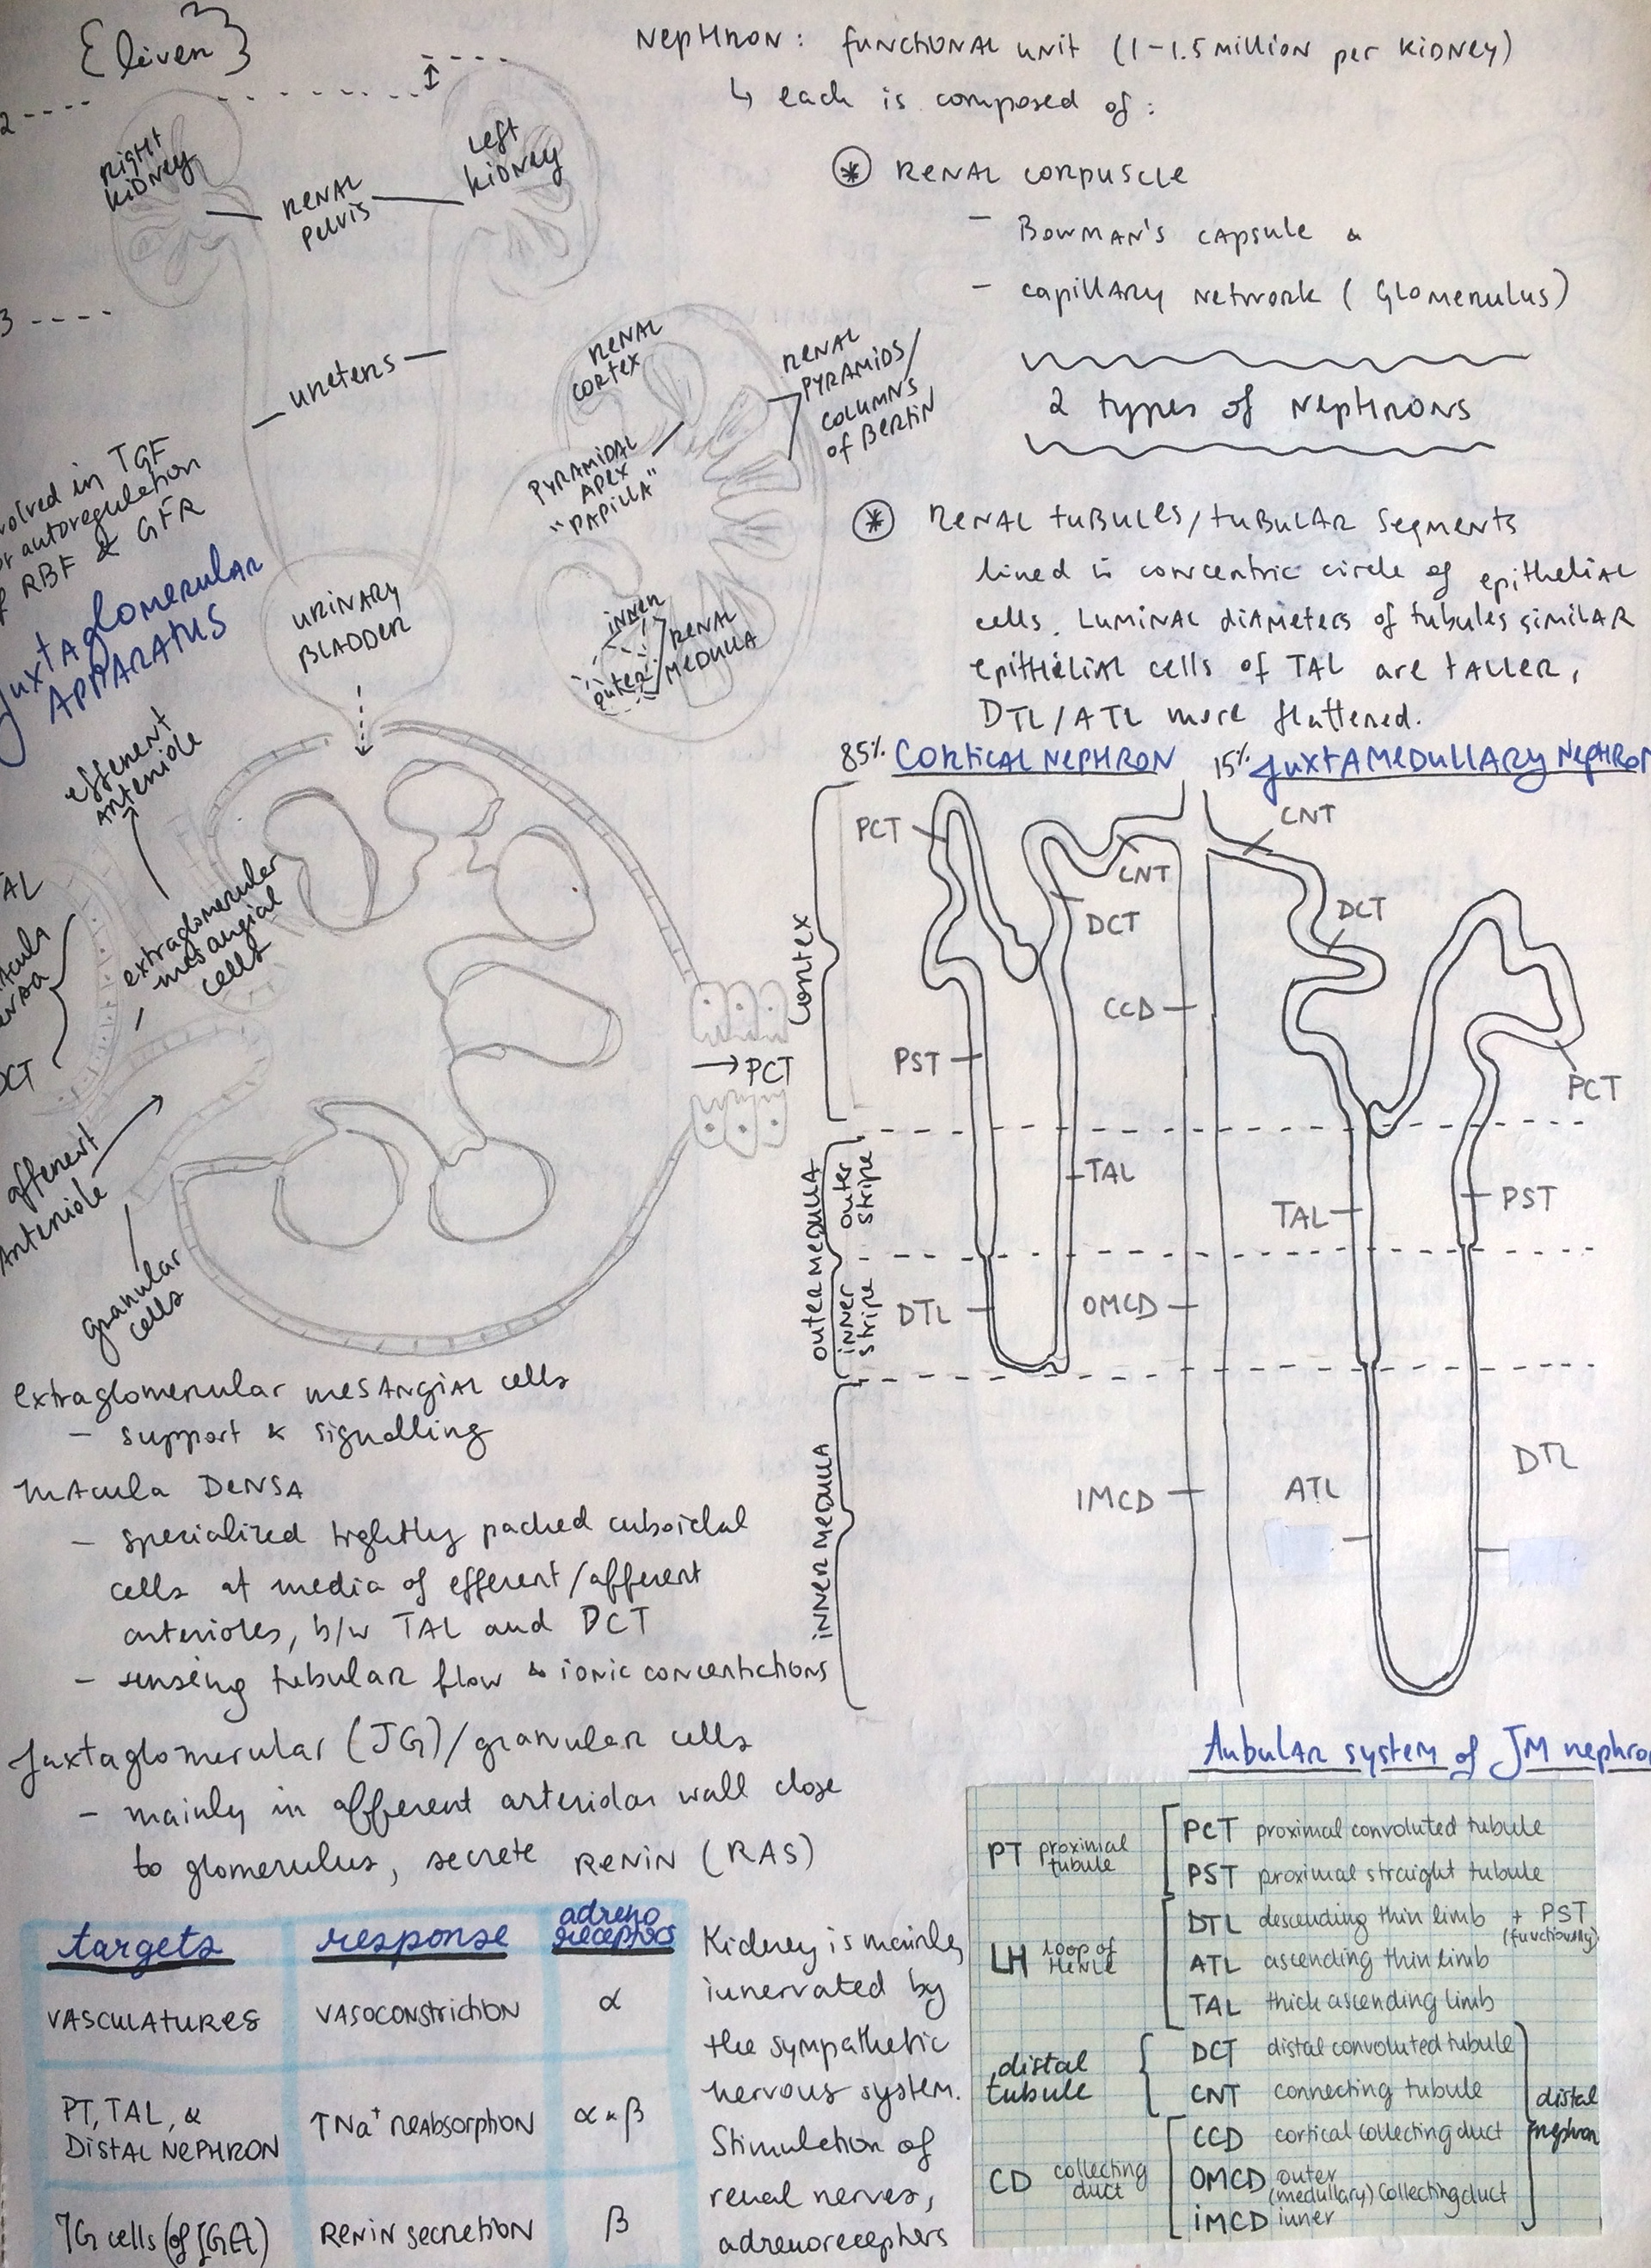 {liver}
2
Right
Kidney
Left
Kidney
Renal
pelvis
3
ureters
Urinary
Bladder
Renal
cortex
Renal
pyramids/
columns
of Bertin
pyramidal
apex
"papilla"
inner
outer
Renal
medulla
Nephron: functional unit (1-1.5 million per kidney)
↳ each is composed of:
* Renal corpuscle
- Bowman's capsule &
- capillary network (Glomerulus)
2 types of Nephrons
* Renal tubules/tubular segments
lined in concentric circle of epithelial
cells. Luminal diameters of tubules similar
epithelial cells of TAL are taller,
DTL/ATL more flattened.
in TGF
autoregulation
RBF & GFR
Juxtaglomerular
Apparatus
efferent
arteriole
extraglomerular
mesangial
cells
afferent
Arteriole
granular
cells
→ PCT
85% Cortical Nephron
15% Juxtamedullary Nephron
cortex
outer medulla
outer
stripe
inner
stripe
inner medulla
PCT
CNT
DCT
PST
CCD
TAL
DTL
OMCD
IMCD
CNT
DCT
PCT
TAL
PST
ATL
DTL
extraglomerular mesangial cells
- support & signalling
macula Densa
- specialized tightly packed cuboidal
cells at media of efferent/afferent
arterioles, b/w TAL and DCT
- sensing tubular flow & ionic concentrations
Juxtaglomerular (JG)/granular cells
- mainly in afferent arteriolar wall close
to glomerulus, secrete Renin (RAS)
targets response adreno
receptors
vasculatures vasoconstriction α
PT, TAL, &
Distal Nephron ↑Na⁺ reabsorption α & β
JG cells (of JGA) Renin secretion β
Kidney is mainly
innervated by
the sympathetic
nervous system.
Stimulation of
renal nerves,
adrenoreceptors
Tubular system of JM nephron
PT proximal
tubule
PCT proximal convoluted tubule
PST proximal straight tubule
LH loop of
Henle
DTL descending thin limb + PST
(functionally)
ATL ascending thin limb
TAL thick ascending limb
distal
tubule
DCT distal convoluted tubule
CNT connecting tubule
distal
nephron
CD collecting
duct
CCD cortical collecting duct
OMCD outer
(medullary) collecting duct
iMCD inner